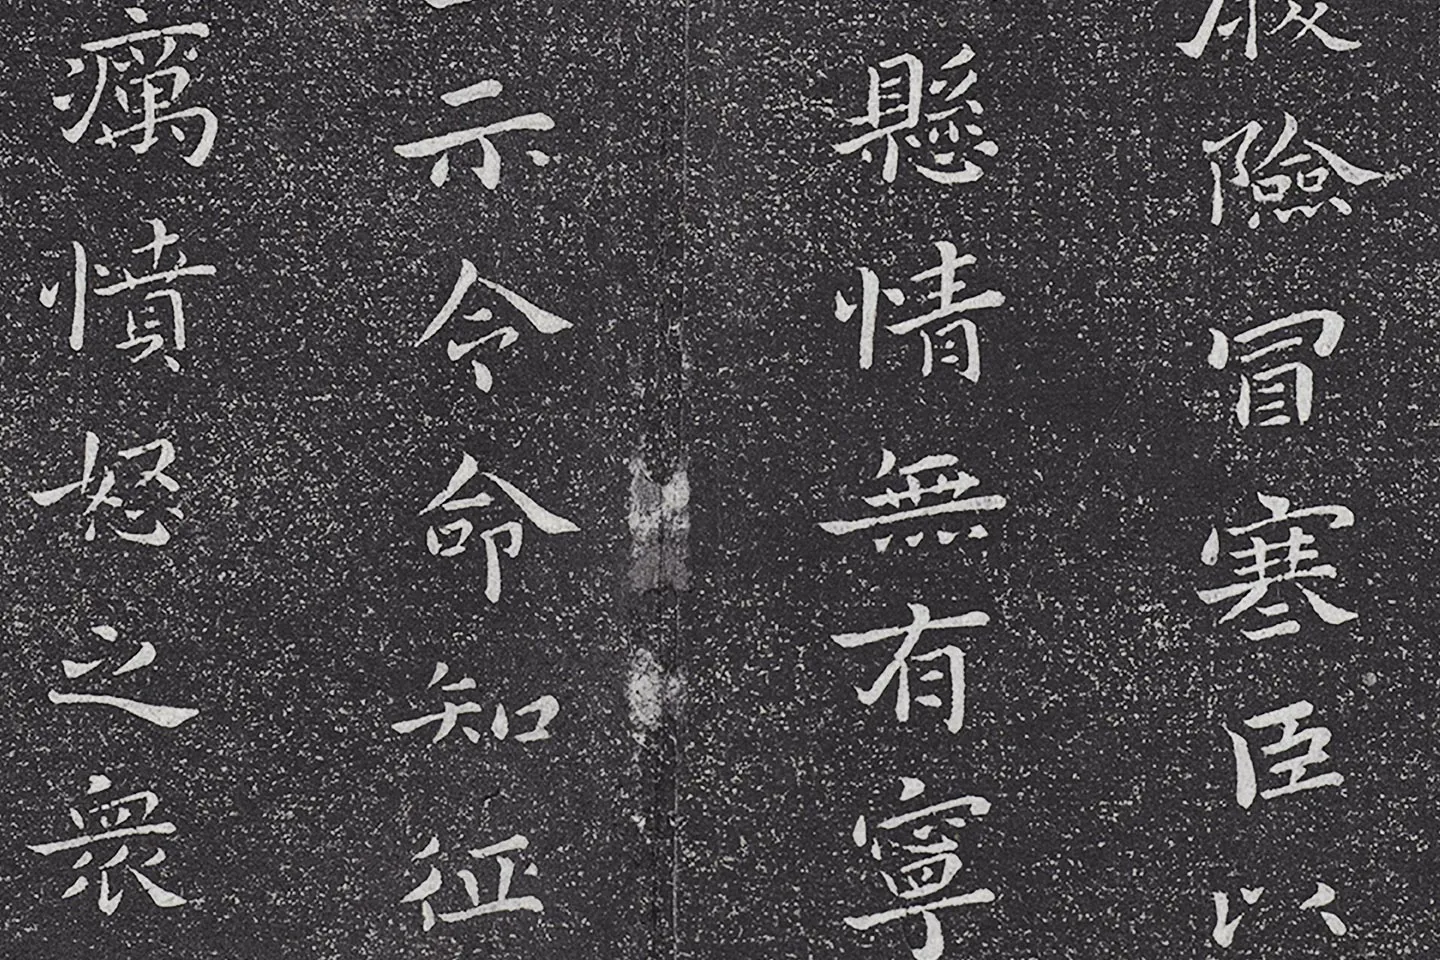 險冒寒臣以
懸情無有寧
示令命知征
癘憤怒之衆